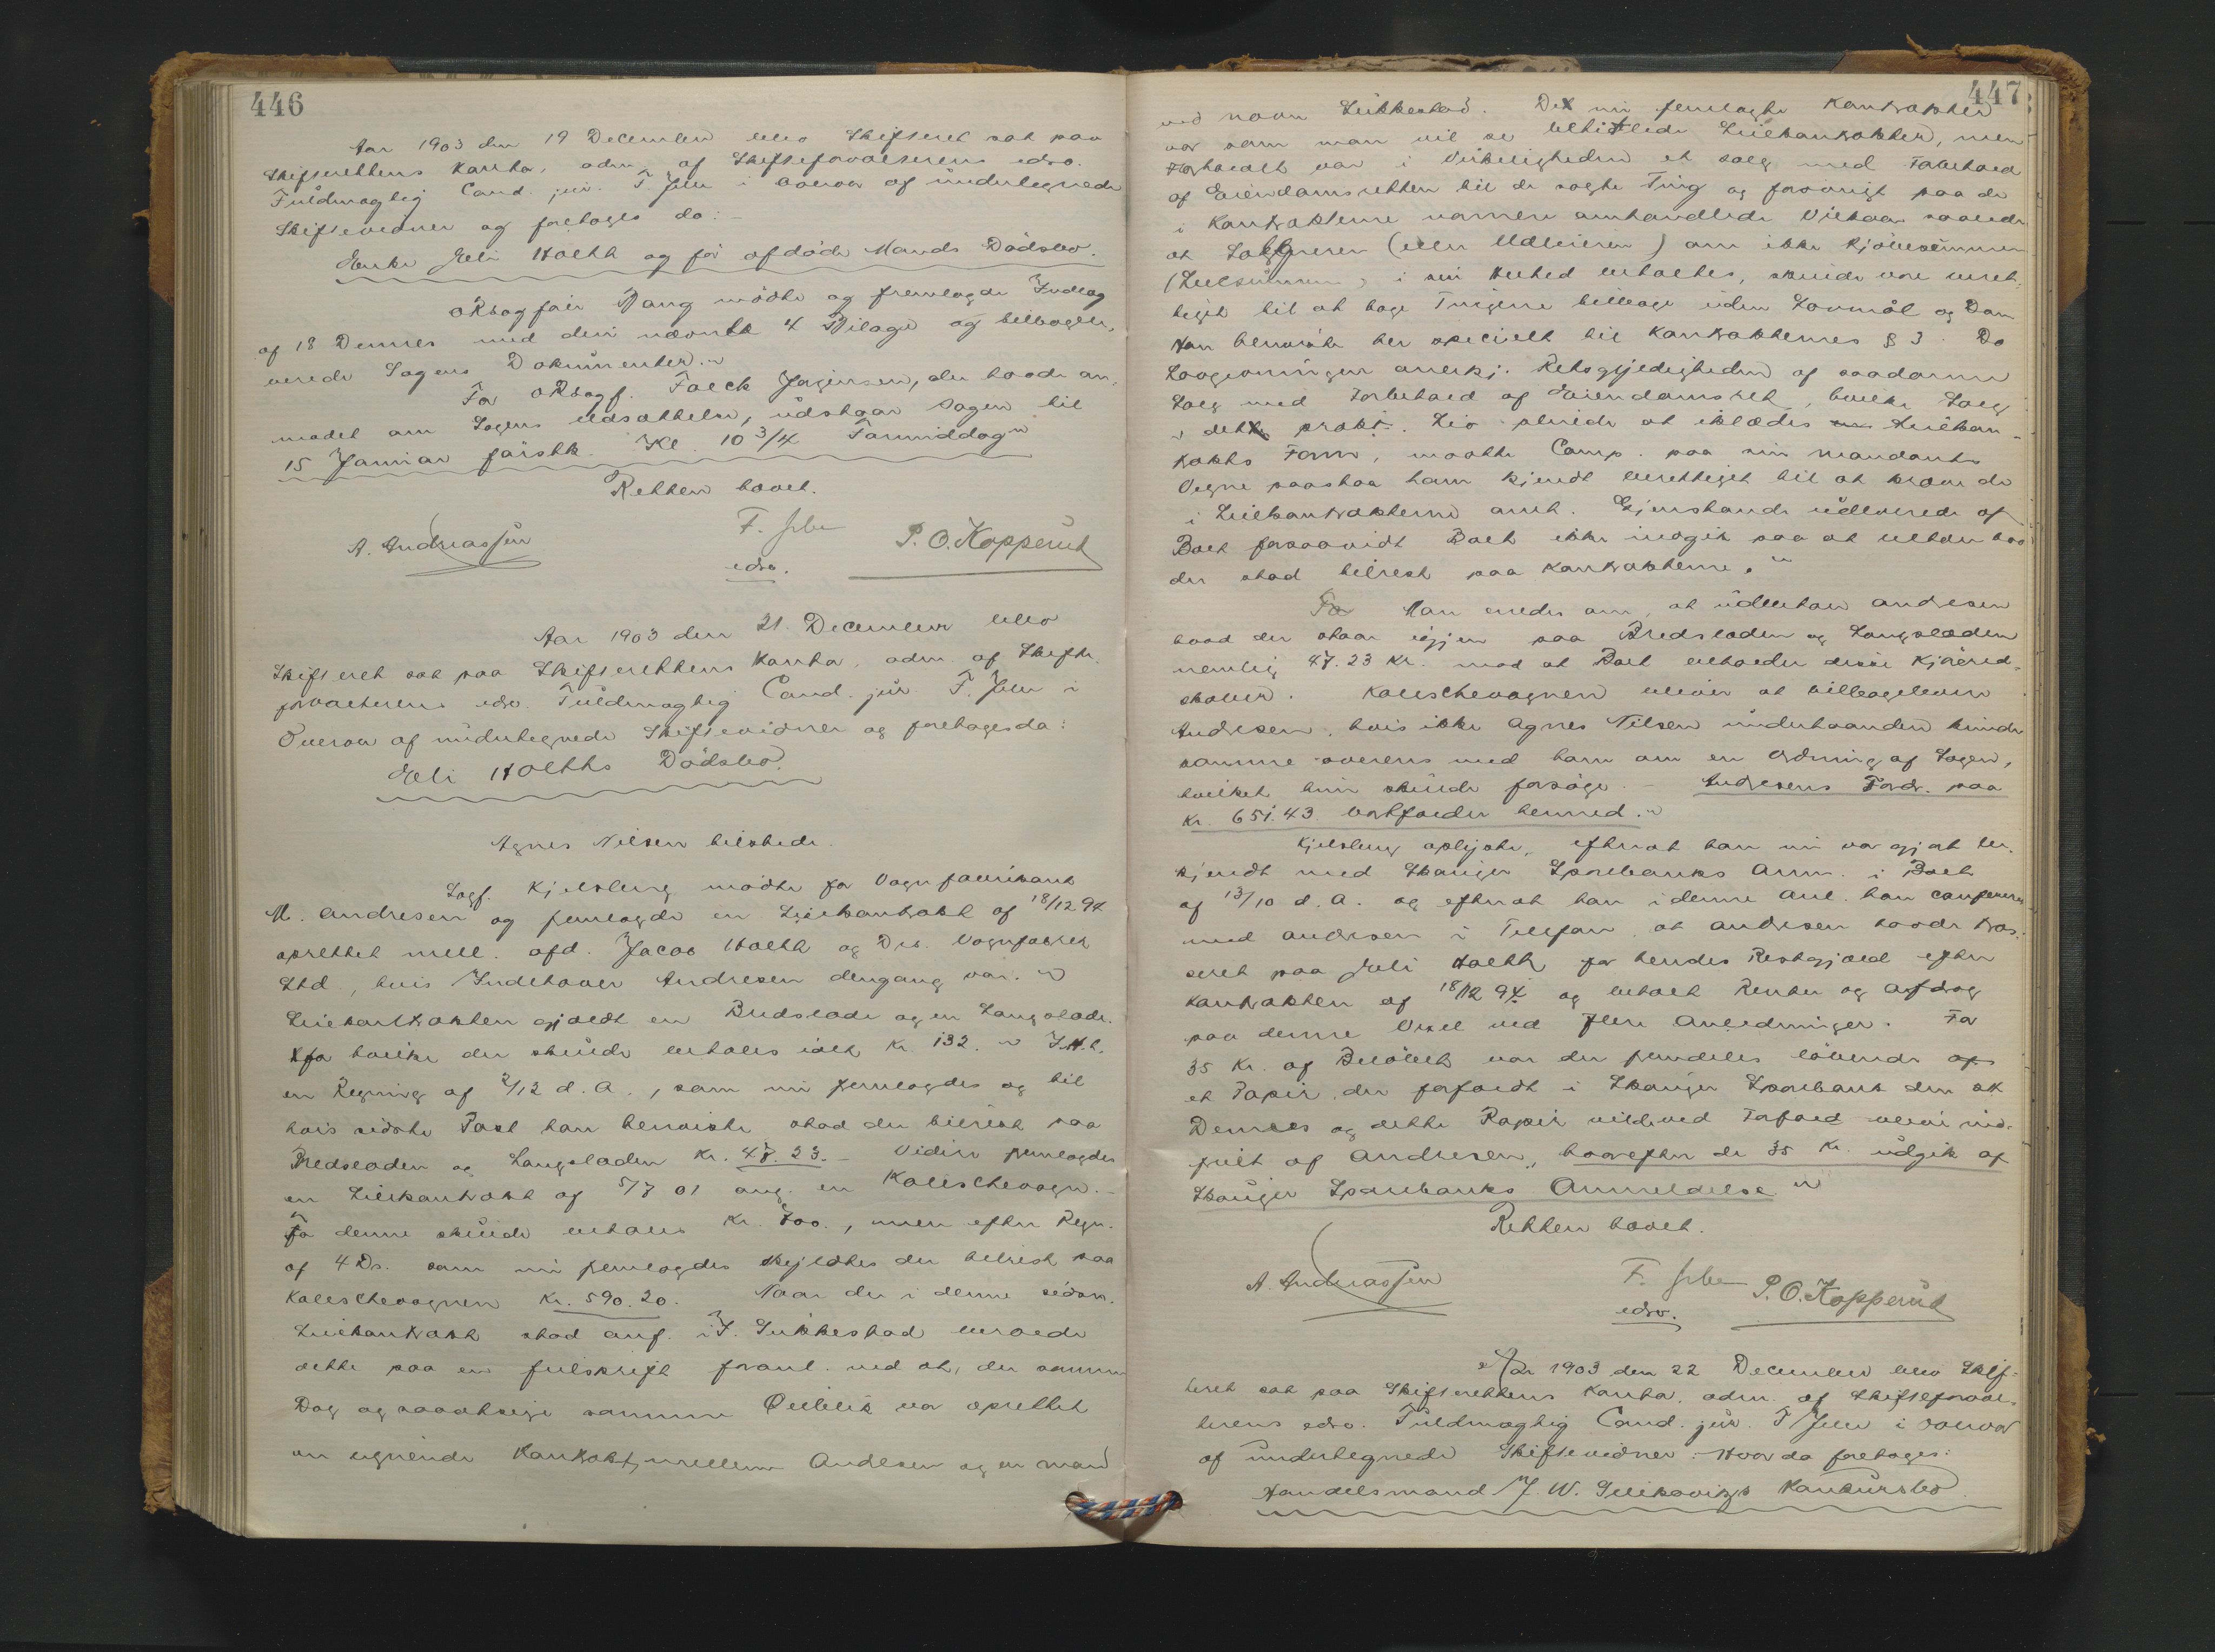 446
Aar 1903 den 19 December blev Skifteret sat paa
Skifterettens Kontor, adm. af Skifteforvalterens edsv.
Fuldmægtig Cand. jur. F. Jebe i Overvær af undertegnede
Skiftevidner og foretoges da:
Enke Eli Holth og før afdøde Mands Dødsbo.
ORsagfører Bang mødte og fremlagde Indlæg
af 18 Dennes med deri nævnte 4 Bilage og tilbagele-
verede Sagens Dokumenter.
For ORsagf. Falck Jørgensen, der havde an-
modet om Sagens Udsættelse, udstaar Sagen til
15 Januar førstk. Kl. 10 3/4 Formiddag
Retten hævet.
A. Andreassen F. Jebe P. O. Kopperud
edsv.
Aar 1903 den 21 December blev
Skifteret sat paa Skifterettens Kontor, adm. af Skifte-
forvalterens edsv. Fuldmægtig Cand. jur. F. Jebe i
Overvær af undertegnede Skiftevidner og foretoges da:
Eli Holths Dødsbo.
Agnes Nilsen tilstede.
Sagf. Kjelsberg mødte for Vognfabrikant
M. Andresen og fremlagde en Leiekontrakt af 18/12 94
oprettet mell. afd. Jacob Holth og Dr. Vognfabrik
Std., hvis Indehaver Andresen dengang var.
Leiekontrakten gjaldt en Bredslæde og en Langslæde.
for hvilke der skulde betales ialt Kr. 132. I. H. t.
en Regning af 2/12 d. A., som nu fremlagdes og til
hvis sidste Post han henviste stod der tilrest paa
Bredslæden og Langslæden Kr. 47.23. – Videre fremlagdes
en Leiekontrakt af 5/7 01 ang. en Kaleschevogn. –
For denne skulde betales Kr. 700., men efter Regn.
af 4 Ds. som nu fremlagdes skyldtes der tilrest paa
Kaleschevognen Kr. 590.20. Naar der i denne sidste
Leiekontrakt stod anf. i F. Lukkestad beroede
dette paa en feilskrift foranl. ved at, der samme
Dag og saaatsige samme Øieblik var oprettet
en lignende Kontrakt mellem Andresen og en mand
447
ved navn Lukkestad. De nu fremlagte Kontrakter
var som man vil se betitlede Leiekontrakter, men
Forholdt var i Virkeligheden et salg med Forbehold
af Eiendomsretten til de solgte Ting og forøvrigt paa de
i Kontrakterne nærmere omhandlede Vilkaar saaledes
at Sælgeren (eller Udleieren) om ikke Kjøbesummen
(Leiesummen) i sin Helhed betaltes, skulde være beret-
tiget til at tage Tingene tilbage uden Lovmål og Dom
Han henviste her specielt til Kontrakternes § 3. Da
Lovgivningen anerkj. Retsgyldigheden af saadanne
Salg med Forbehold af Eiendomsret, hvilke Salg
i det prakt. Liv pleiede at iklædes Leiekon-
trakts Form, maatte Comp. paa sin Mandants
Vegne paastaa ham kjendt berettiget til at kræve de
i Leiekontrakterne omh. Gjenstande udleverede af
Boet forsaavidt Boet ikke indgik paa at betale hvad
der stod tilrest paa Kontrakterne.
Man enedes om, at udbetale Andresen
hvad der staar igjen paa Bredslæden og Langslæden
nemlig 47.23 Kr. mod at Boet beholder disse Kjøred-
skaber. Kaleschevognen bliver at tilbagelevere
Andresen, hvis ikke Agnes Nilsen underhaanden kunde
komme overens med ham om en Ordning af Sagen,
hvilket hun skulde forsøge. – Andresens Fordr. paa
Kr. 651.43 bortfalder hermed.
Kjelsberg oplyste, efterat han nu var gjort be-
kjendt med Skauger Sparebanks Anm. i Boet
af 13/10 d. A. og efterat han i denne Anl. har confereret
med Andresen i Telefon, at Andresen havde tras-
seret paa Eli Holth for hendes Restgjæld efter
Kontrakten af 18/12 94 og betalt Renter og Afdrag
paa denne Vexel ved flere Anledninger. For
35 Kr. af Beløbet var der fremdeles løbende
et Papir, der forfaldt i Skauger Sparebank den
Dennes og dette Papir vilde ved Forfald blive ind-
friet af Andresen, hvorefter de 35 Kr. udgik af
Skauger Sparebanks Anmeldelse.
Retten hævet.
A. Andreassen F. Jebe P. O. Kopperud
edsv.
Aar 1903 den 22 December blev Skif-
teret sat paa Skifterettens Kontor, adm. af Skifteforval-
terens edsv. Fuldmægtig Cand. jur. F. Jebe i Overvær
af undertegnede Skiftevidner. Hvor da foretoges:
Handelsmand J. W. Konkursbo